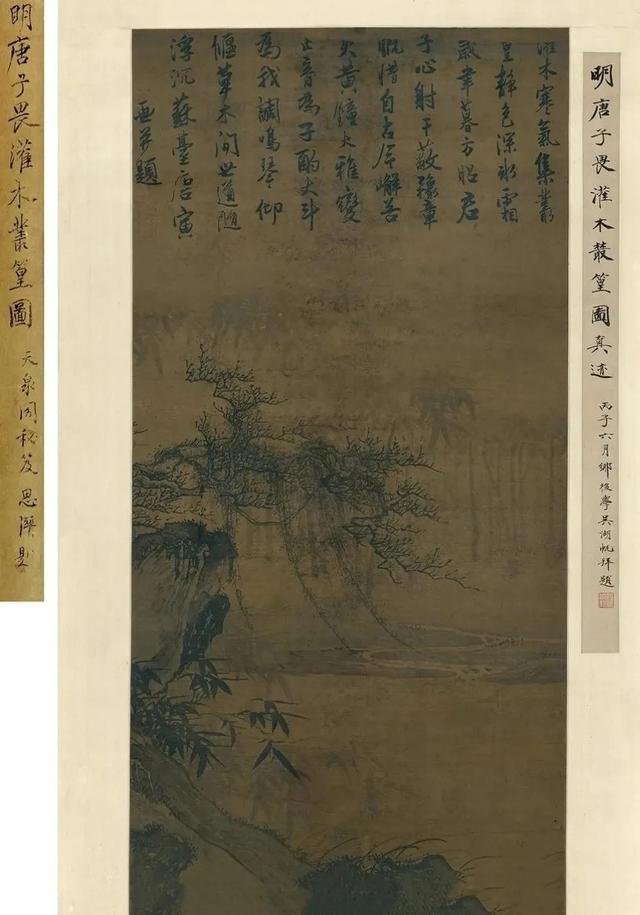 明唐子畏灌木叢篁圖真迹
丙子六月鄉後學吳湖帆拜題
灌木寒氣集叢
篁静色深氷霜
歲聿暮方昭君
子心射干蔽豫章
慨惜自古今嶰谷
失黄鐘大雅變
正音為子酌大斗
為我調鳴琴仰
偃草木間世道隨
浮沉 蘇臺唐寅
畫并題
明唐子畏灌木叢篁圖
天泉閣秘笈 思濟題